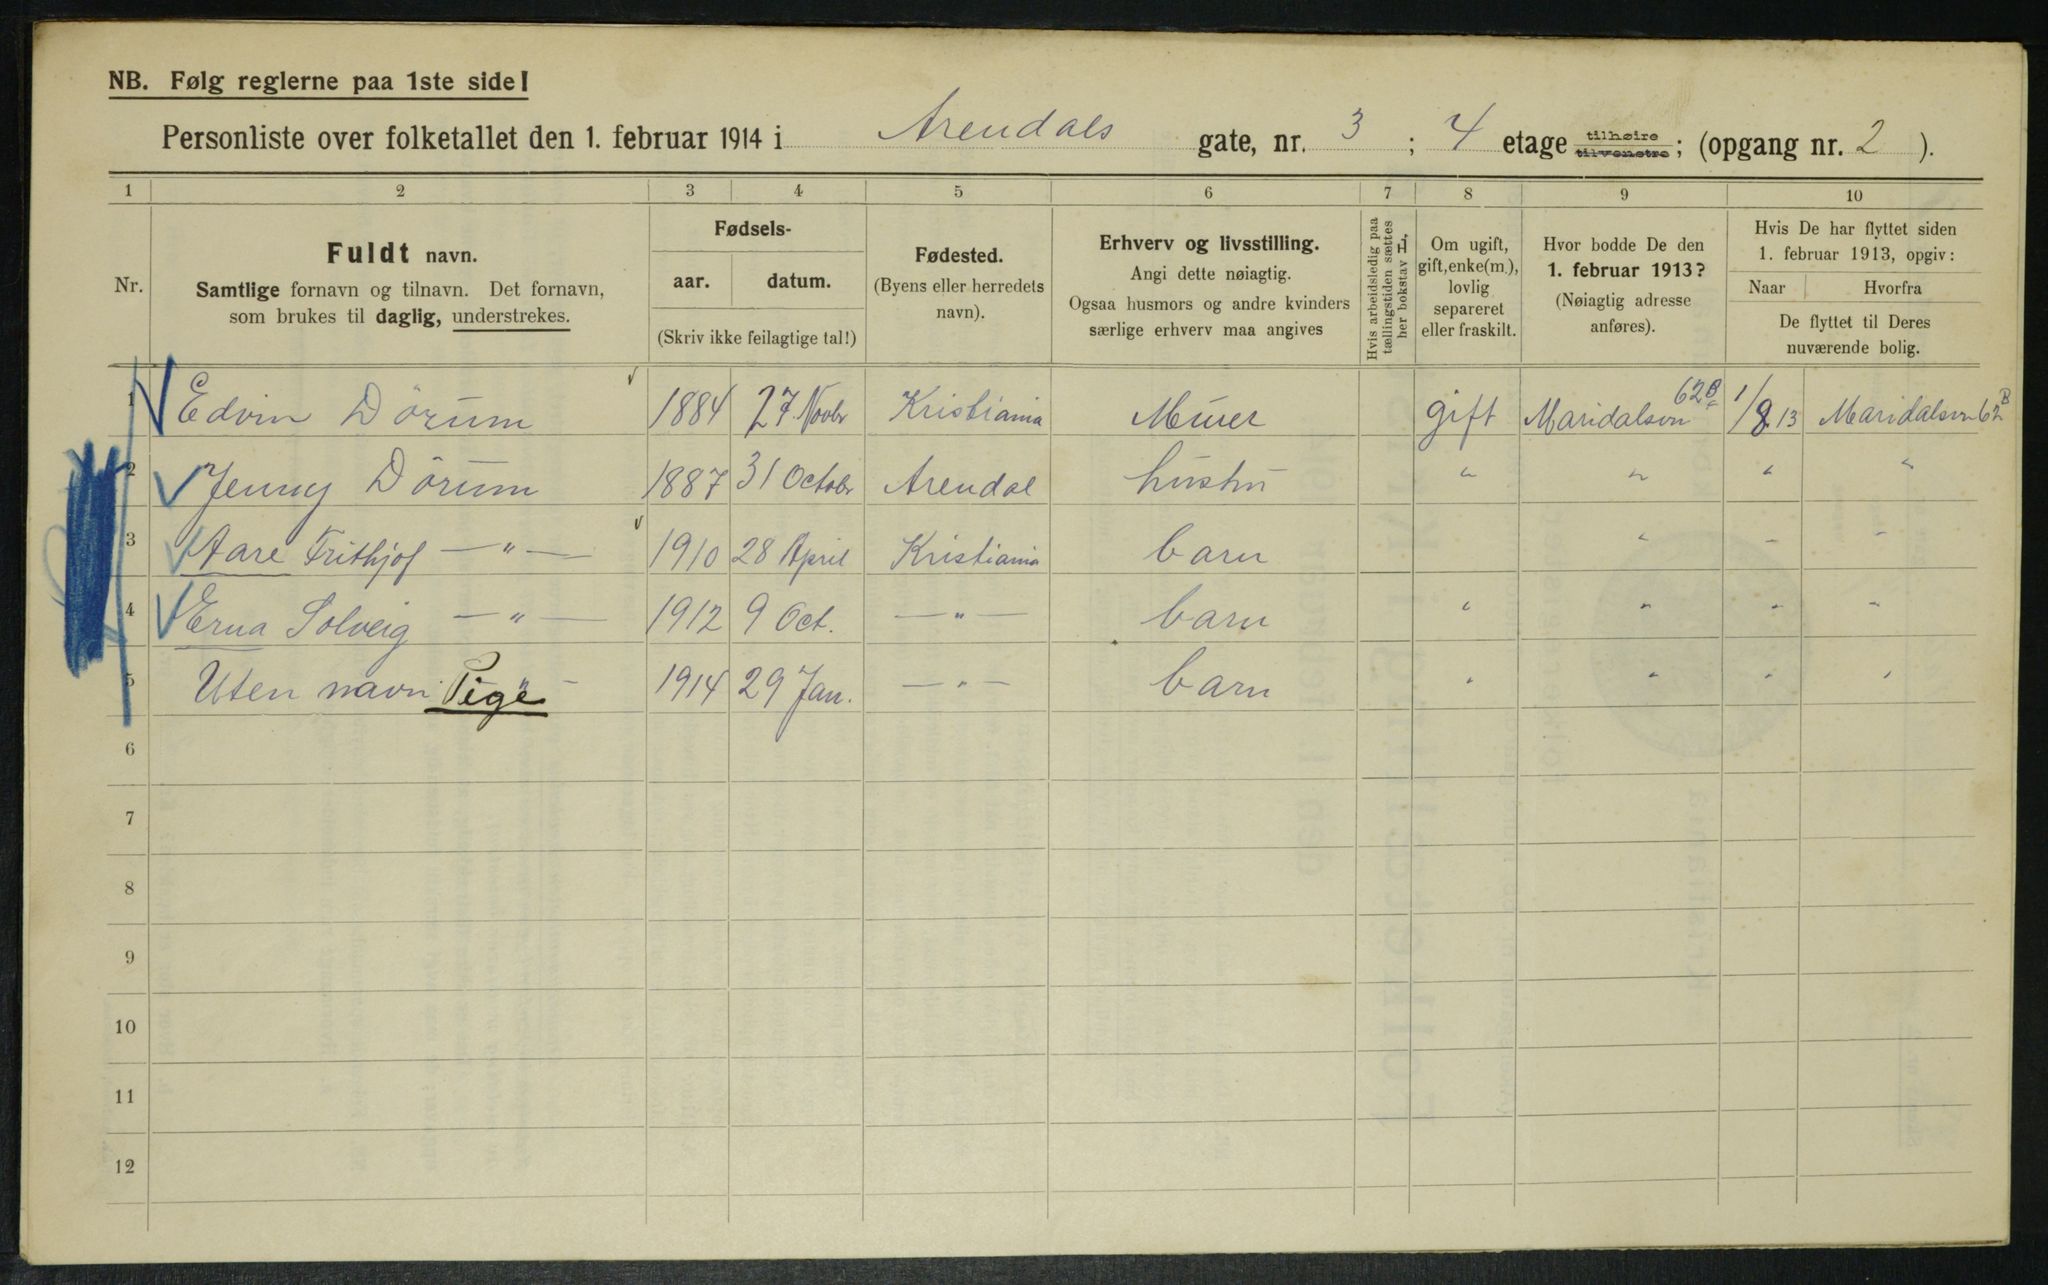 NB. Følg reglerne paa 1ste side!
Personliste over folketallet den 1. februar 1914 i Arendals gate, nr. 3 ; 4 etage tilhøire tilvenstre; (opgang nr. 2 ).
1 2 3 4 5 6 7 8 9 10
Nr.
Fuldt navn.
Samtlige fornavn og tilnavn. Det fornavn,
som brukes til daglig, understrekes.
Fødsels-
aar. datum.
(Skriv ikke feilagtige tal!)
Fødested.
(Byens eller herredets
navn).
Erhverv og livsstilling.
Angi dette nøiagtig.
Ogsaa husmors og andre kvinders
særlige erhverv maa angives
Hvis arbeidsledig paa
tællingstiden sættes
her bokstav L.
Om ugift,
gift, enke(m.),
lovlig
separeret
eller fraskilt.
Hvor bodde De den
1. februar 1913?
(Nøiagtig adresse
anføres).
Hvis De har flyttet siden
1. februar 1913, opgiv:
Naar Hvorfra
De flyttet til Deres
nuværende bolig.
1 Edvin Dörum 1884 27. Novbr Kristiania Murer gift Maridalsvn 62B 1/8 13 Maridalsvn 62B
2 Jenny Dörum 1887 31 Octobr Arendal hustru " " " "
3 Aare Frithjof —"— 1910 28 April Kristiania barn " - "
4 Erna Solveig —"— 1912 9 Oct. —"— barn " " " "
5 Uten navn Pige " 1914 29 Jan. —"— barn " " " "
6
7
8
9
10
11
12